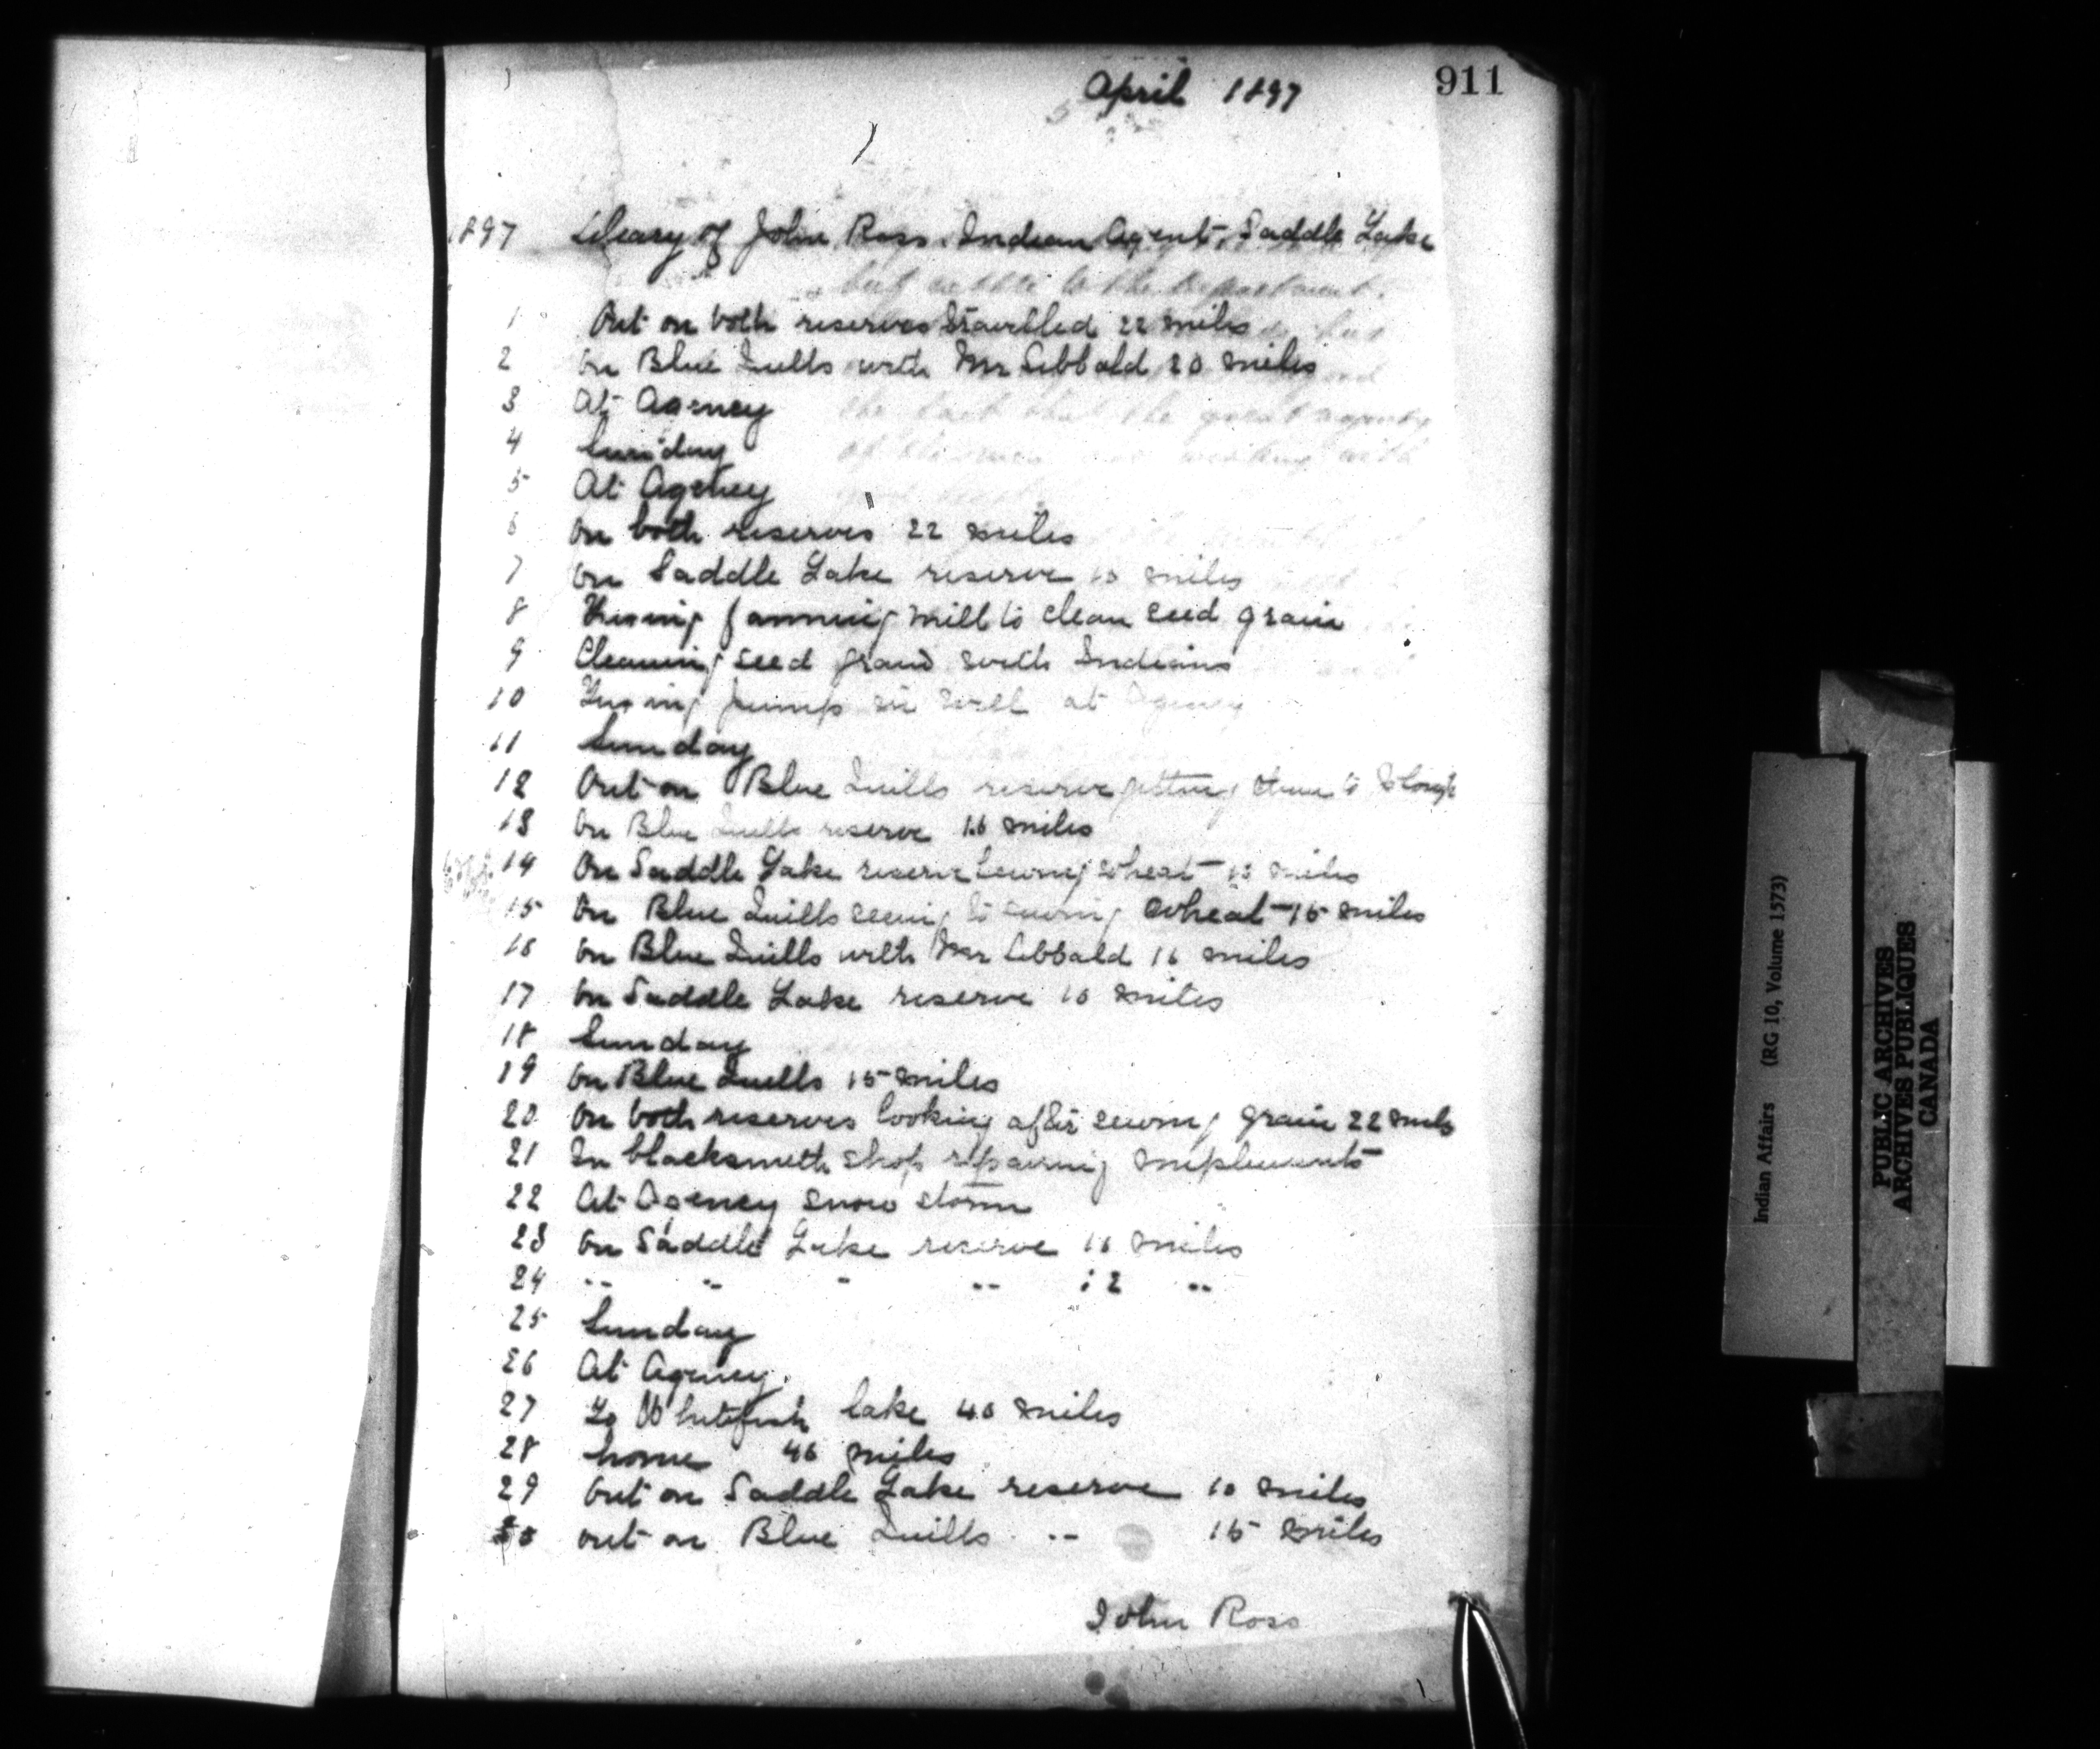 April 1897
911
1897 Dieary of John Ross. Indian Agent, Saddle Lake
1 Out on both reserves travelled 22 miles
2 On Blue Quills with Mr Sibbald 20 miles
3 At Agency
4 Sunday
5 At Agency
6 On both reserves 22 miles
7 On Saddle Lake reserve 10 miles
8 Fixing fanning mill to clean seed grain
9 Cleaning seed grain with Indians
10 Fixing pump in well at Agency
11 Sunday
12 Out on Blue Quills reserve getting them to Plough
13 On Blue Quills reserve 16 miles
14 On Saddle Lake reserve sewing wheat 10 miles
15 On Blue Quills seeing to sewing wheat 15 miles
16 On Blue Quills with Mr Sibbald 16 miles
17 On Saddle Lake reserve 10 miles
18 Sunday
19 On Blue Quills 15 miles
20 On both reserves looking after sewing grain 22 miles
21 In blacksmith shop repairing implements
22 At Agency snow storm
23 On Saddle Lake reserve 16 miles
24 " " " " 12 "
25 Sunday
26 At Agency.
27 To Whitefish lake 40 miles
28 home 46 miles
29 Out on Saddle Lake reserve 10 miles
30 out on Blue Quills " 15 miles
John Ross
Indian Affairs (RG 10, Volume 1573)
PUBLIC ARCHIVES
ARCHIVES PUBLIQUES
CANADA